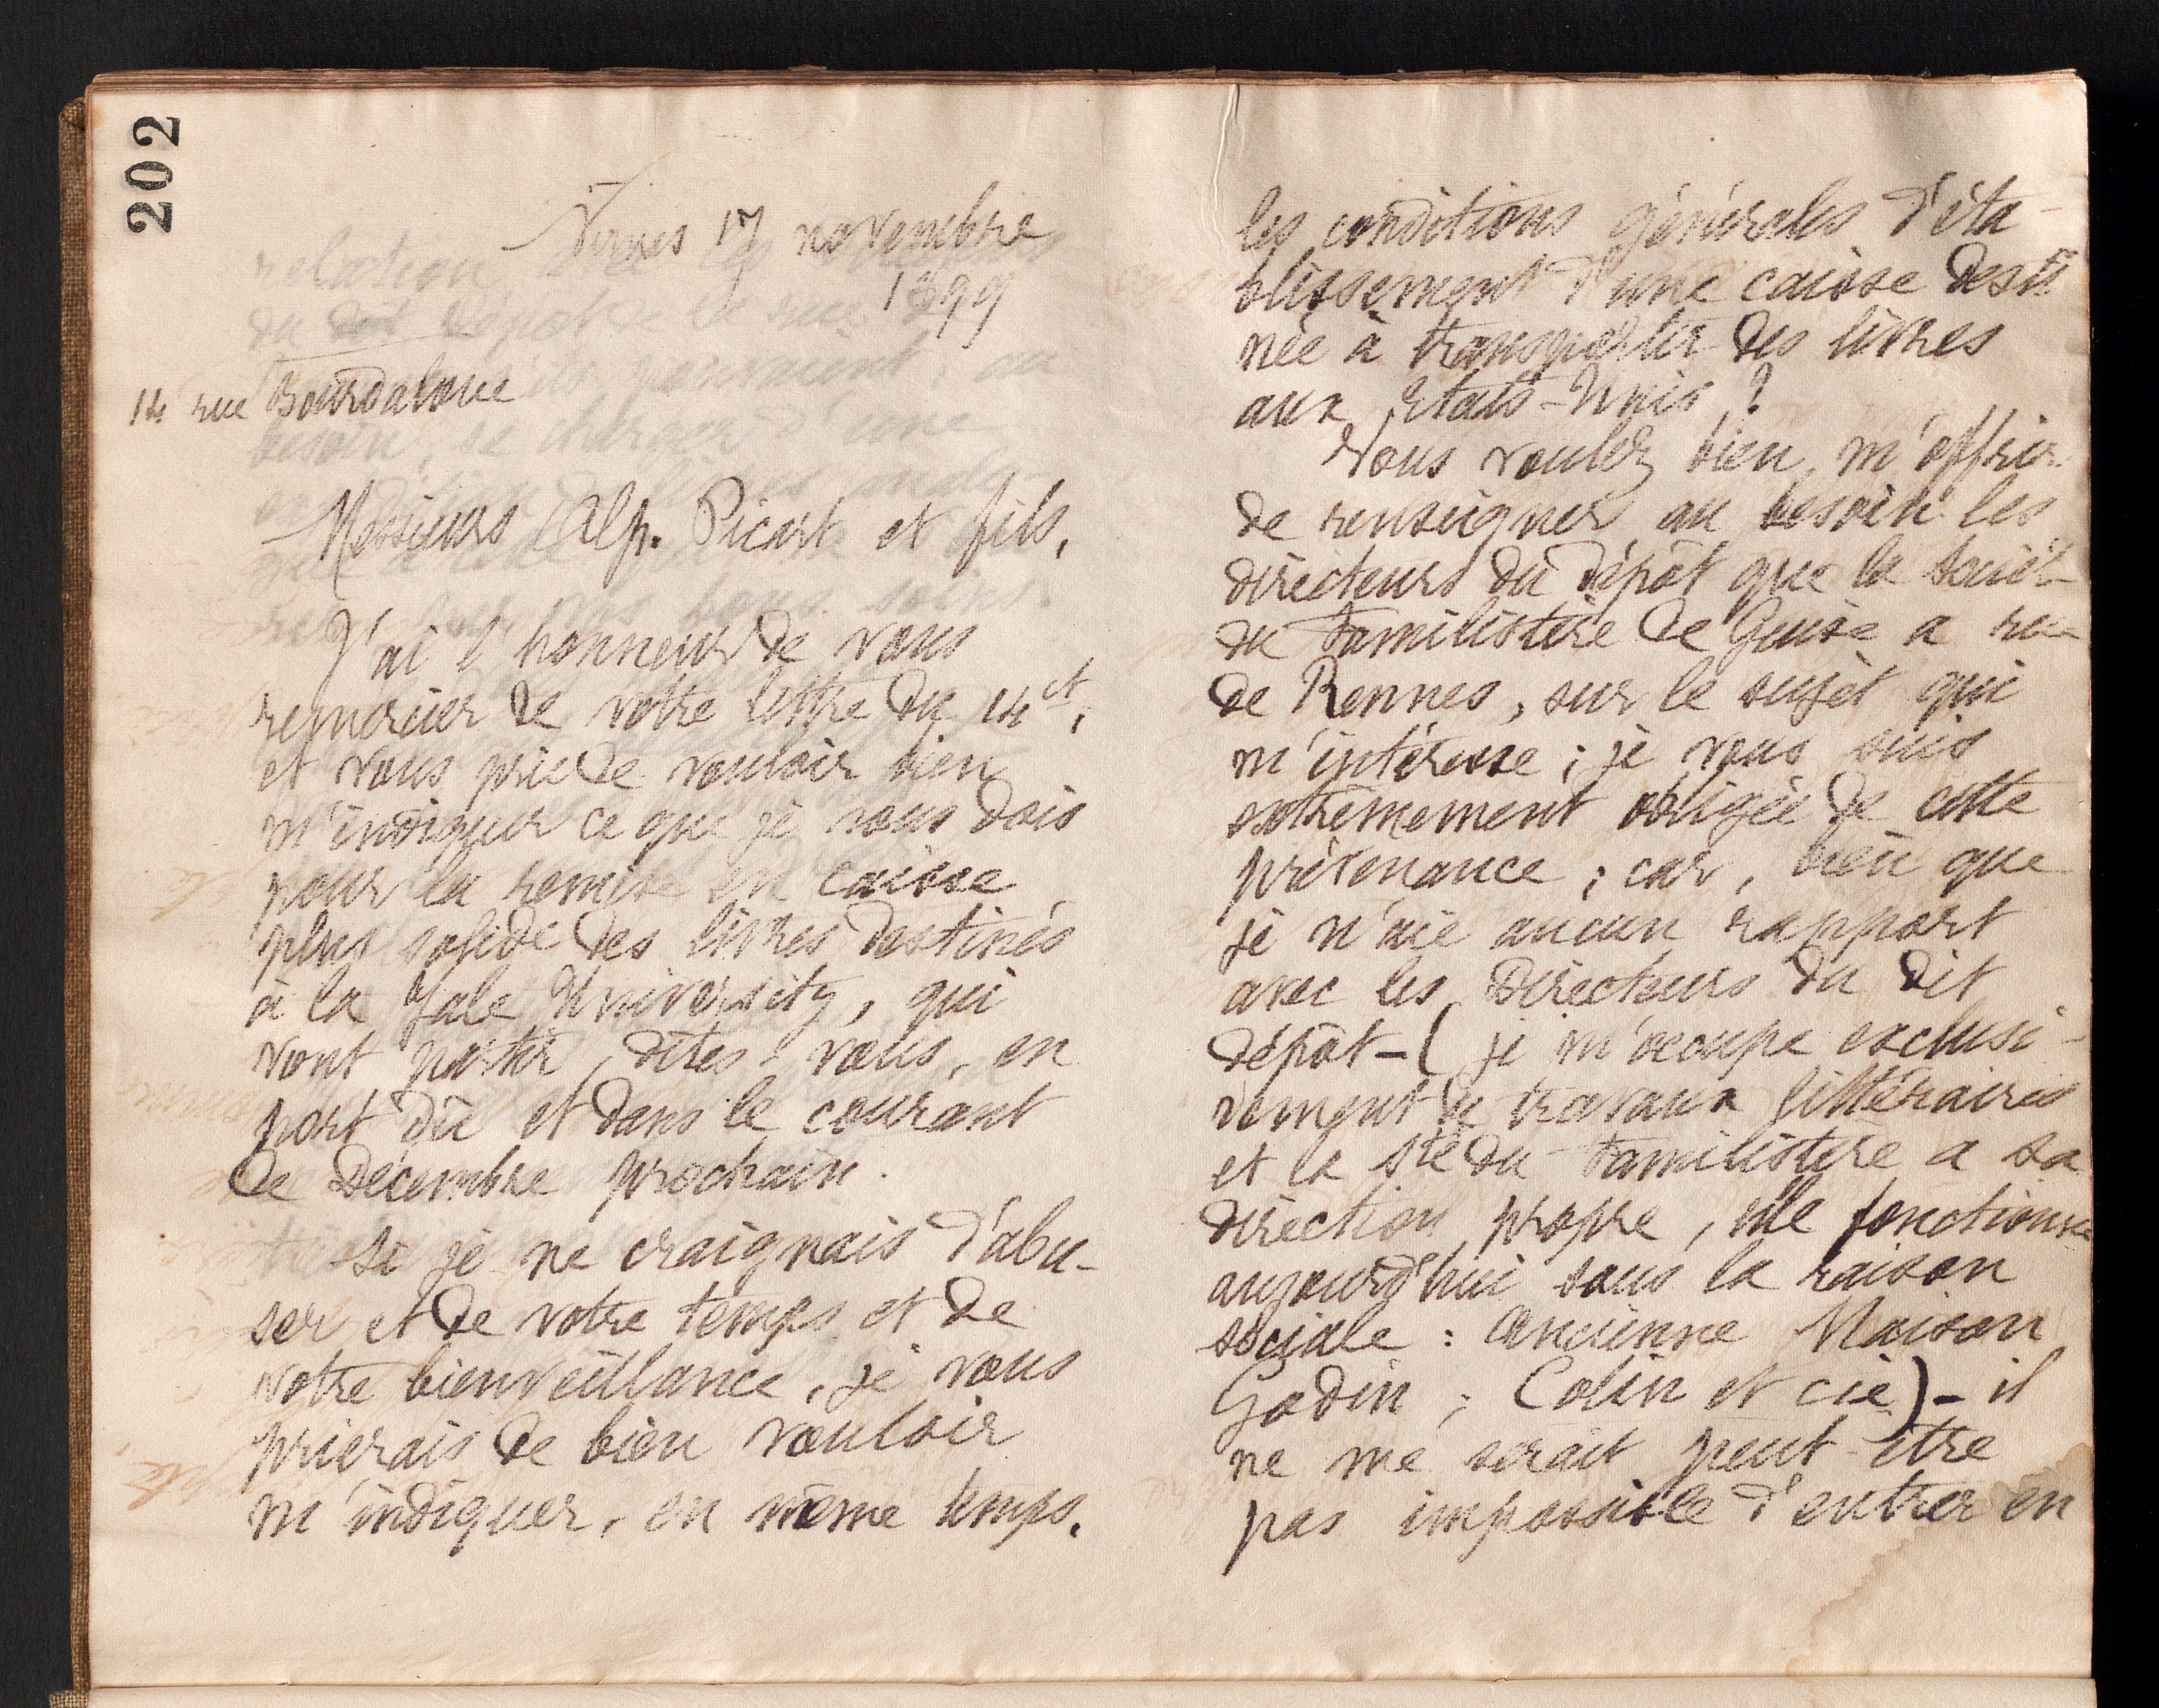 202
Nimes 17 novembre
1899
14 rue Bourdaloue
Messieurs Alp. Picart et fils,
J'ai l'honneur de vous
remercier de votre lettre du 14 ct,
et vous prie de vouloir bien
m'indiquer ce que je vous dois
pour la remise en caisse
plus solide des livres destinés
à la Yale University, qui
vont partir, dites-vous, en
port dû et dans le courant
de Décembre prochain.
Si je ne craignais d'abu-
ser et de votre temps et de
votre bienveillance, je vous
prierais de bien vouloir
m'indiquer, en même temps,
les conditions générales d'éta-
blissement d'une caisse desti
née à transporter des livres
aux Etats-Unis ?
Vous voulez bien m'offrir
de renseigner au besoin les
directeurs du dépôt que la Sociét
du Familistère de Guise a rue
de Rennes, sur le sujet qui
m'intéresse ; je vous suis
extrêmement obligée de cette
prévenance ; car, bien que
je n'aie aucun rapport
avec les Directeurs du dit
dépôt - ( je m'occupe exclusi-
vement de travaux littéraires
et la Sté du Familistère a sa
direction propre, elle fonctionne
aujourd'hui sous la raison
sociale : Ancienne Maison
Godin ; Colin et cie ) - il
ne me serait peut-être
pas impossible d'entrer en